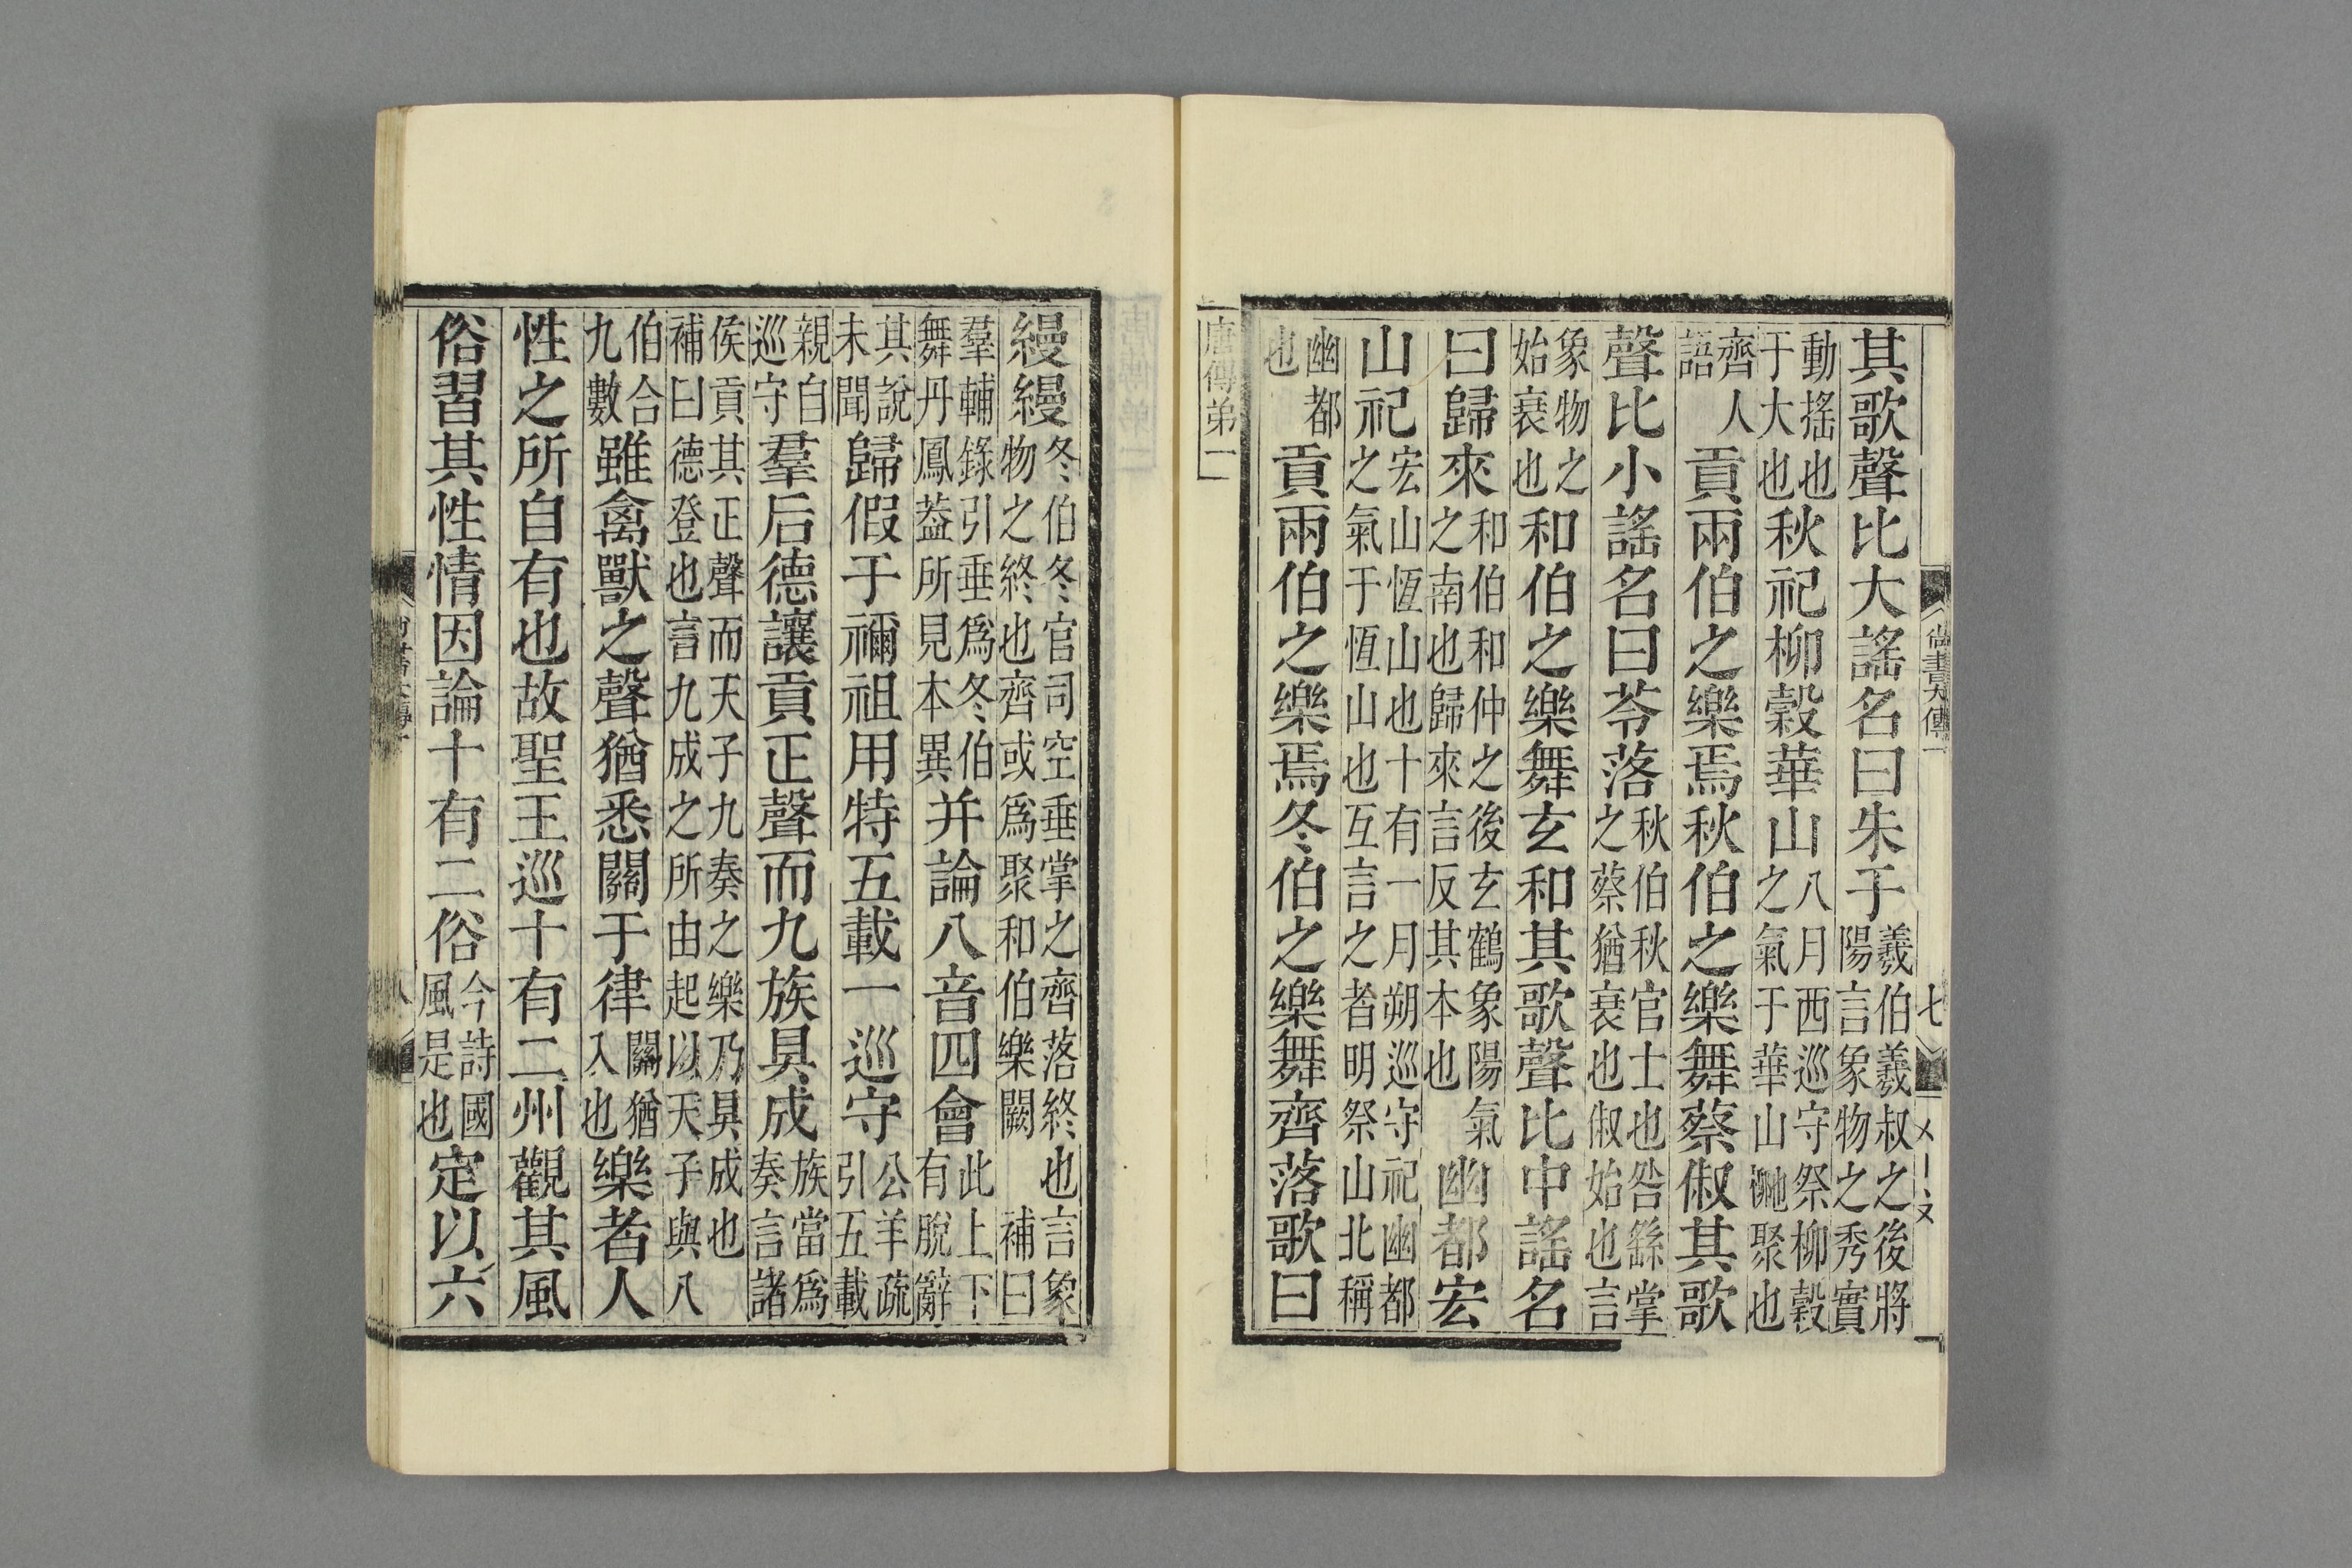 尚書大傳一
七
其歌聲比大謠名曰朱于羲伯羲叔之後將陽言象物之秀實
動搖也于大也秋祀柳穀華山八月西巡守祭柳穀之氣于華山聚也
齊人語貢兩伯之樂焉秋伯之樂舞蔡俶其歌
聲比小謠名曰苓落秋伯秋官士也咎繇掌之蔡猶衰也俶始也言
象物之始衰也和伯之樂舞玄和其歌聲比中謠名
曰歸來和伯和仲之後玄鶴象陽氣之南也歸來言反其本也幽都宏
山祀宏山恆山也十有一月朔巡守祀幽都之氣于恆山也互言之者明祭山北稱
幽都也貢兩伯之樂焉冬伯之樂舞齊落歌曰
唐傳弟一
縵縵冬伯冬官司空垂掌之齊落終也言象物之終也齊或爲聚和伯樂闕補曰
羣輔錄引垂爲冬伯舞丹鳳葢所見本異并論八音四會此上下有脫辭
其說未聞歸假于禰祖用特五載一巡守公羊疏引五載
親自巡守羣后德讓貢正聲而九族具成族當爲奏言諸
侯貢其正聲而天子九奏之樂乃具成也補曰德登也言九成之所由起以天子與八
伯合九數雖禽獸之聲猶悉關于律關猶入也樂者人
性之所自有也故聖王巡十有二州觀其風
俗習其性情因論十有二俗今詩國風是也定以六